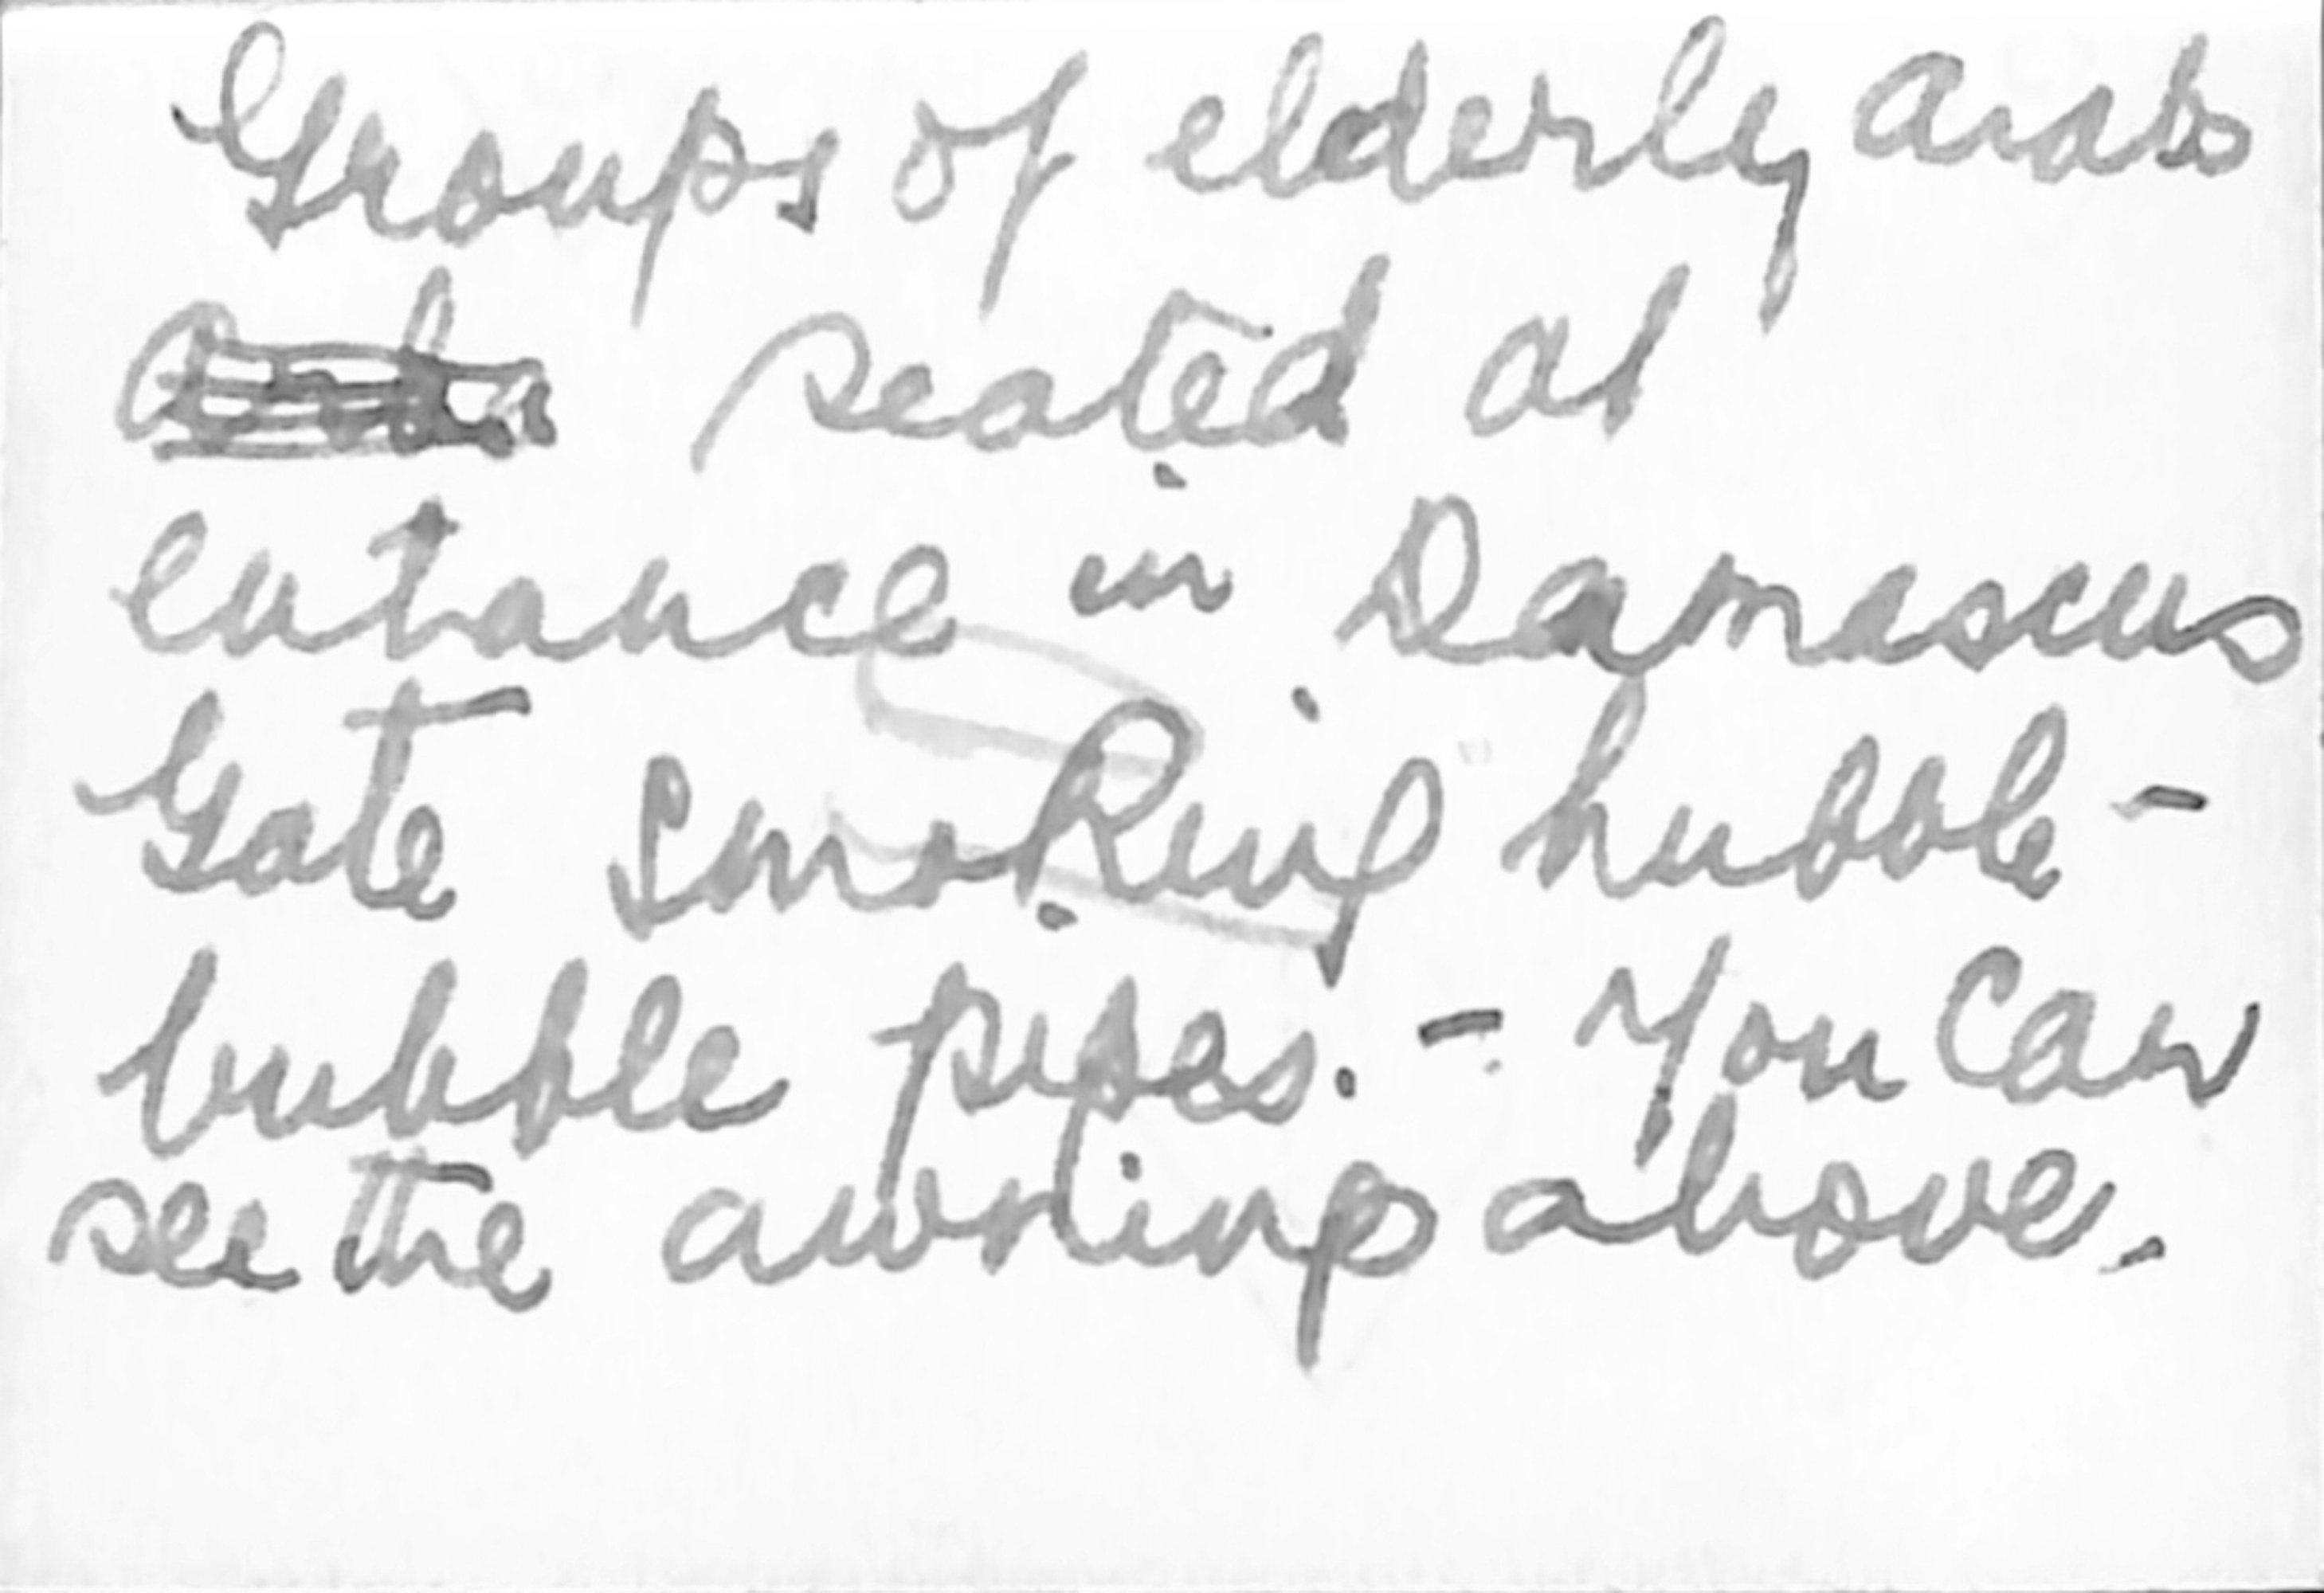 Groups of elderly arabs
seated at
entrance in Damascus
Gate smoking hubble-
bubble pipes. - You can
see the awning above.